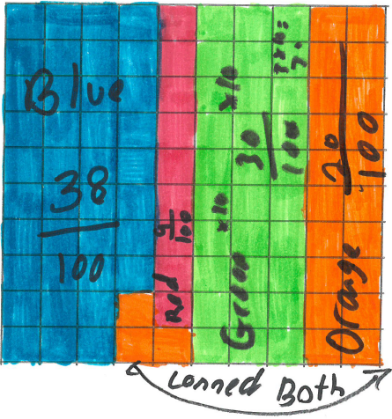 Blue
38
100
Red
9
100
Green
x10
x10
30
100
Orange
20
100
conned Both